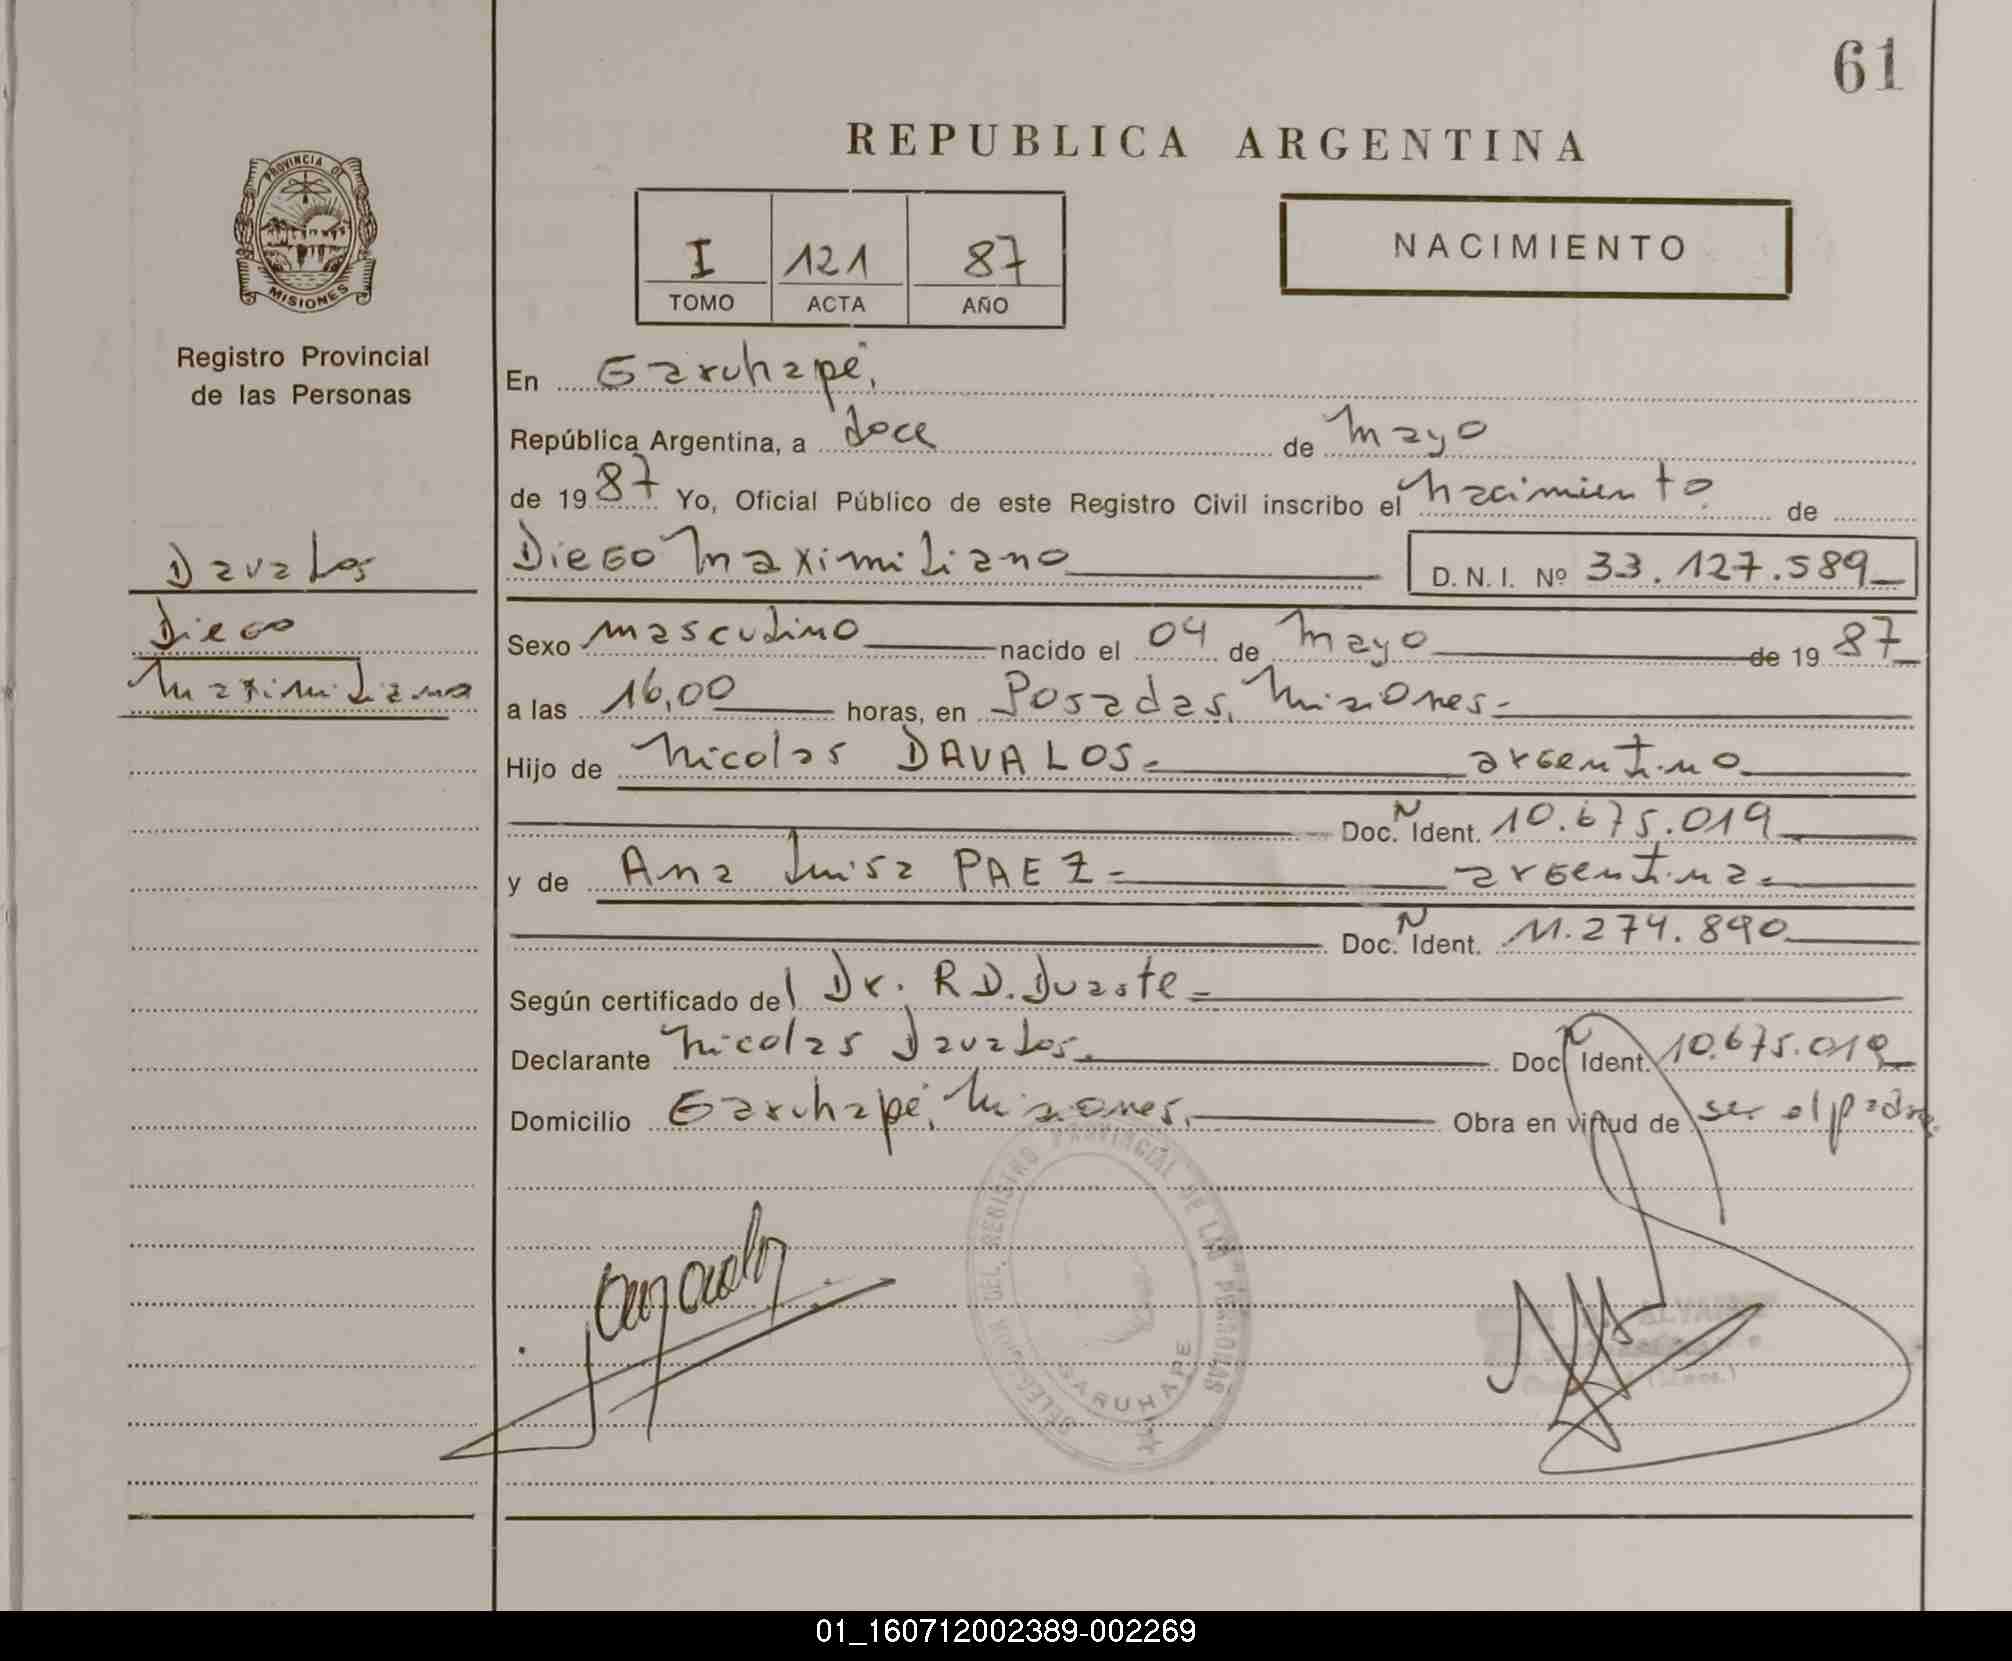 61
REPUBLICA ARGENTINA
PROVINCIA DE
MISIONES
I 121 87
TOMO ACTA AÑO
NACIMIENTO
Registro Provincial
de las Personas
En Garuhapé,
República Argentina, a doce de Mayo
de 1987 Yo, Oficial Público de este Registro Civil inscribo el nacimiento de
Davalos
Diego Maximiliano D.N.I. Nº 33.127.589
Diego
Sexo masculino nacido el 04 de Mayo de 1987
Maximiliano
a las 16,00 horas, en Posadas, Misiones.-
Hijo de Nicolas DAVALOS.- argentino
Doc. N Ident. 10.675.019
y de Ana Luisa PAEZ.- argentina.
Doc. N Ident. 11.274.890
Según certificado del Dr. R D. Duarte.-
Declarante Nicolas Davalos. Doc N Ident. 10.675.019
Domicilio Garuhapé, Misiones. Obra en virtud de ser el padre.
DELEGACION DEL REGISTRO PROVINCIAL DE LAS PERSONAS
GARUHAPE
01_160712002389-002269